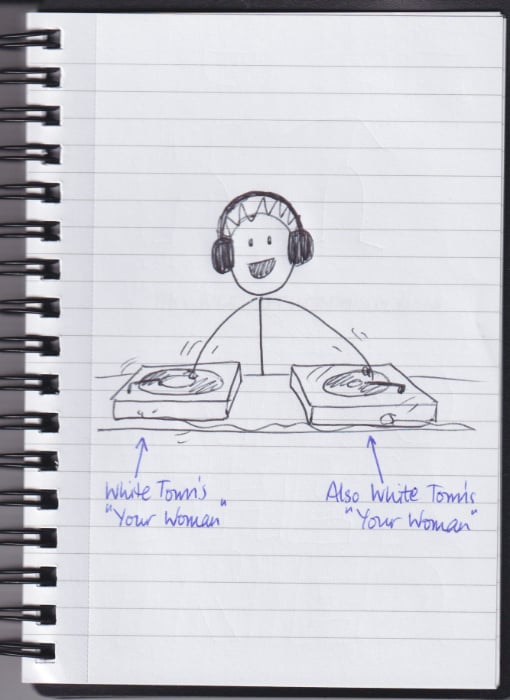 White Town's
"Your Woman"
Also White Town's
"Your Woman"